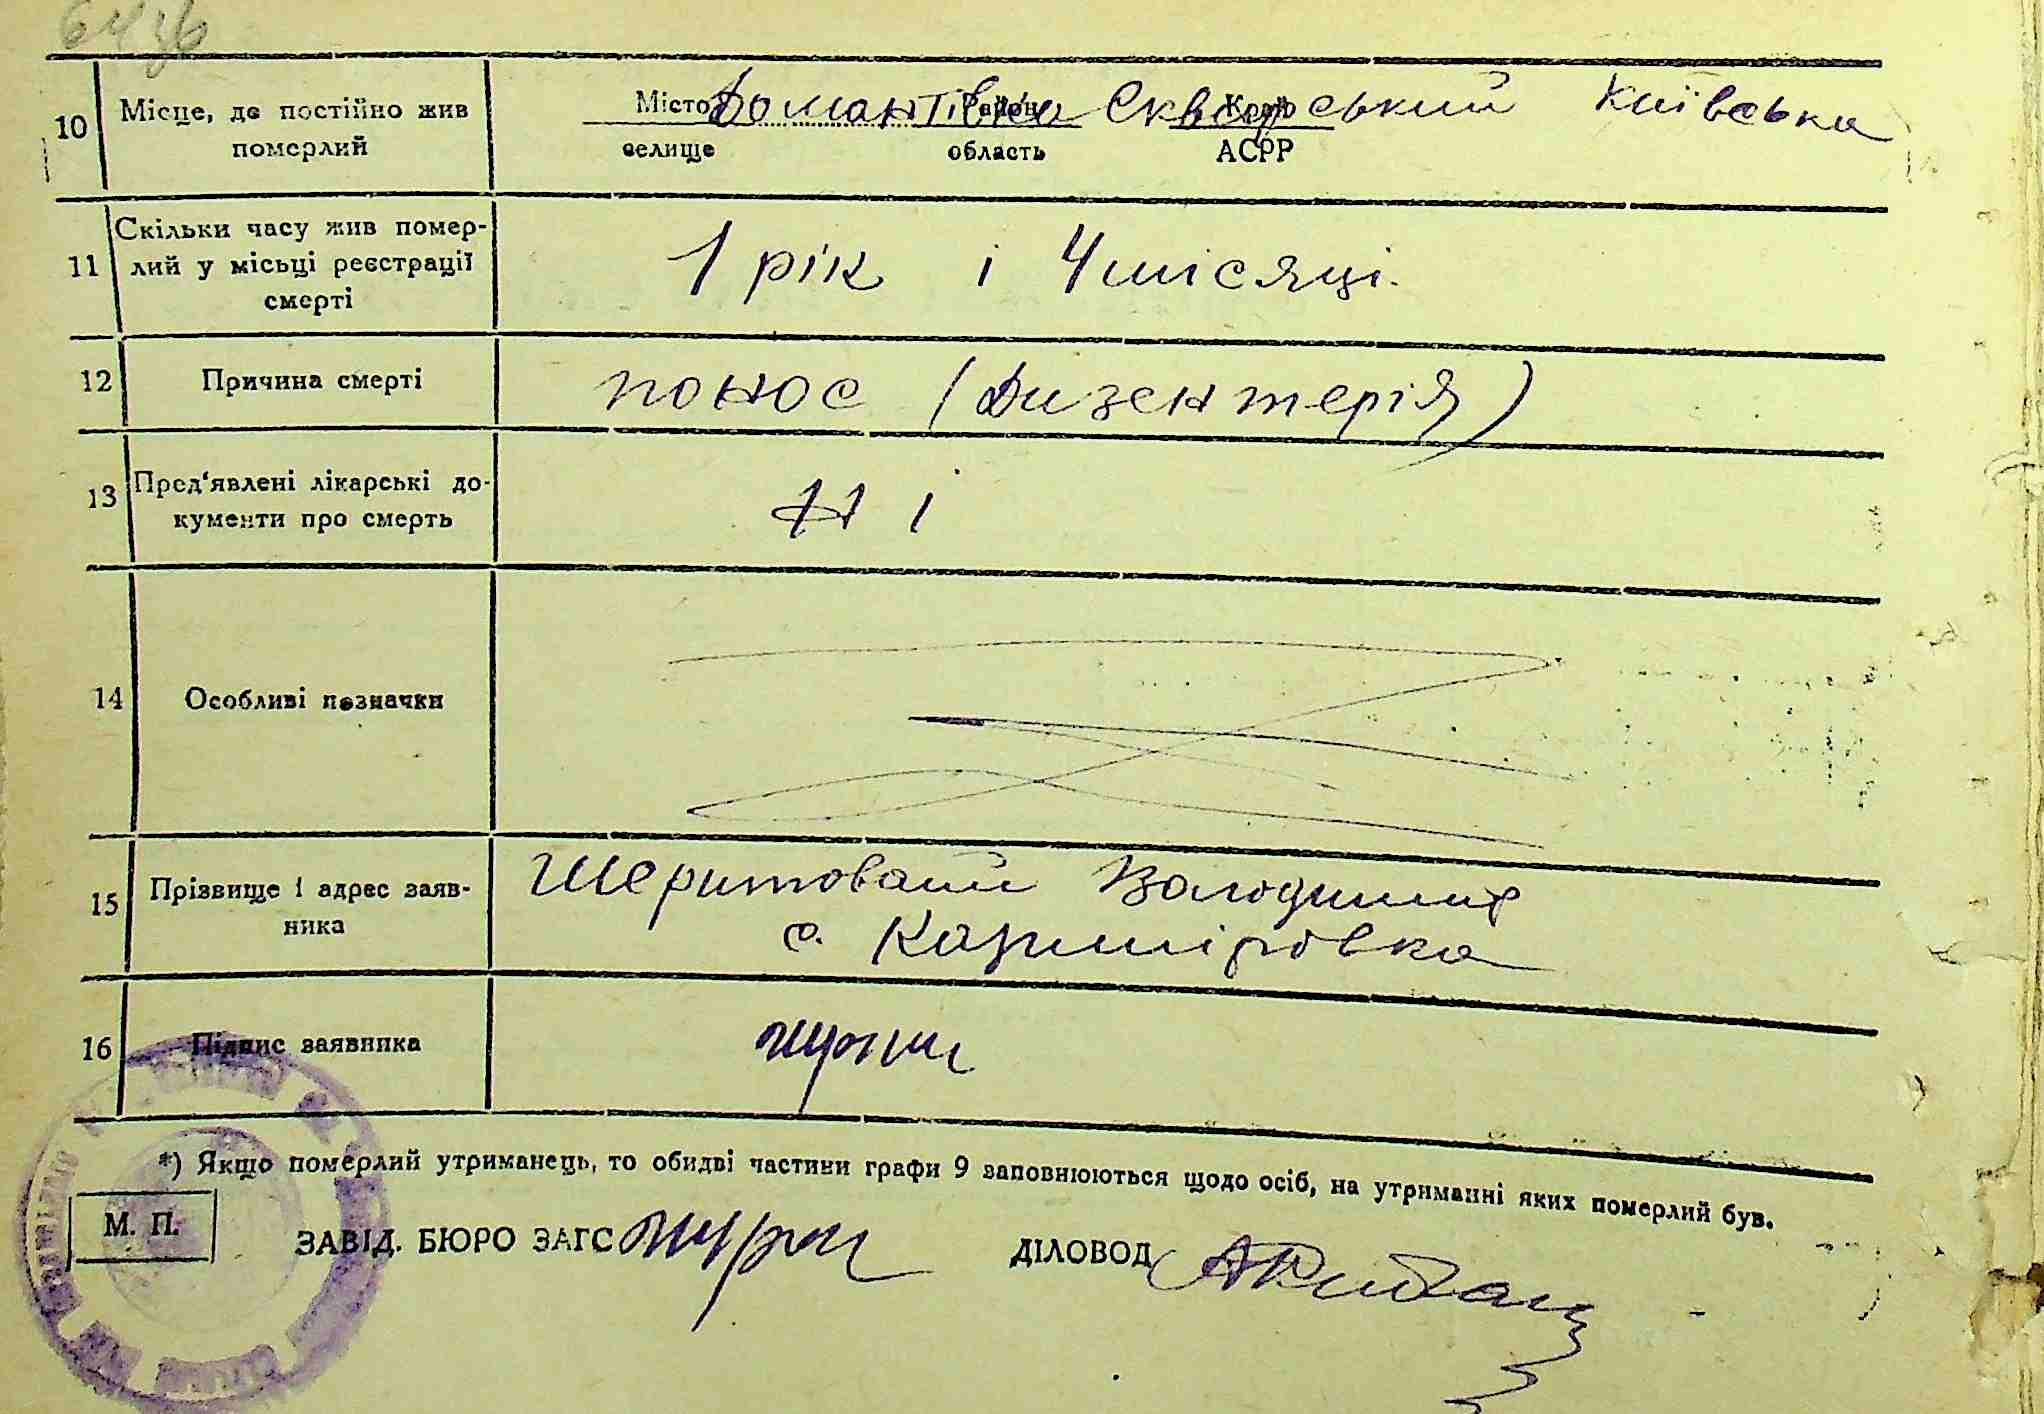 10 Місце, де постійно жив померлий
Місто Район Край
Домантівка Сквирський Київська
селище область АСРР
11 Скільки часу жив помер-
лий у місьці реєстрації
смерті
1 рік і 4 місяці.
12 Причина смерті
понос (Дизентерія)
13 Пред'явлені лікарські до-
кументи про смерть
Ні
14 Особливі позначки
15 Прізвище і адрес заяв-
ника
Володимир
с. Казиміровка
16 Підпис заявника
*) Якщо померлий утриманець, то обидві частини графи 9 заповнюються щодо осіб, на утриманні яких померлий був.
М. П.
ЗАВІД. БЮРО ЗАГС ДІЛОВОД